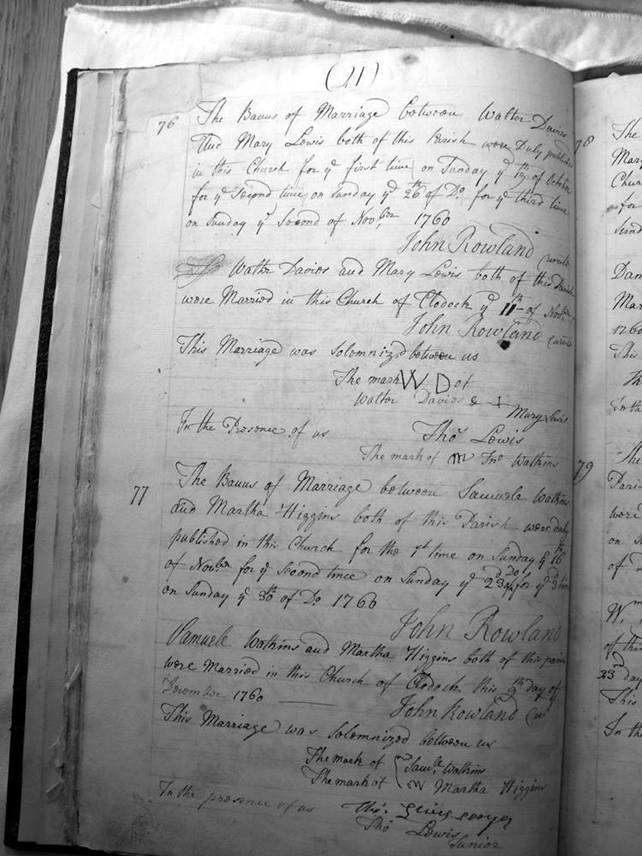 (11)
76 The Banns of Marriage between Walter Davies
and Mary Lewis both of this Parish were Duly publish
in this Church for yᵉ first time on Sunday yᵉ of October
for yᵉ Second time on Sunday yᵉ 26 of Dº. for yᵉ third time
on Sunday yᵉ Second of Novᵇᵉʳ 1760
John Rowland Curate
Walter Davies and Mary Lewis both of this Parish
were Married in this Church of Clodock yᵉ 11ᵗʰ of Novᵇᵉʳ
John Rowland Curate
This Marriage was Solemnized between us
The mark W D of
Walter Davies & + Mary Lewis
In the Presence of us Thoˢ Lewis
The mark of m Jnº Watkins
77 The Banns of Marriage between Samuele Watkins
and Martha Higgins both of this Parish were duly
published in this Church for the 1ˢᵗ time on Sunday yᵉ 16ᵗʰ
of Novᵇᵉʳ for yᵉ Second time on Sunday yᵉ 23ᵈ Dº for yᵉ 3ᵈ time
on Sunday yᵉ 30ᵗʰ of Dº 1760
John Rowland
Samuele Watkins and Martha Higgins both of this parish
were Married in this Church of Clodock this 9ᵗʰ day of
December 1760
John Rowland Cur
This Marriage was Solemnized between us
The mark of { Samˡᵉ Watkins
The mark of m Martha Higgins
In the presence of us Thoˢ.
Thoˢ Lewis
Junior
78 The
Mary
Chur
for
Sund
Dan
Mar
1760
This
In the
79 The
Paris
were
on Su
of D
W.ᵐ
of this
23 day
This
In the